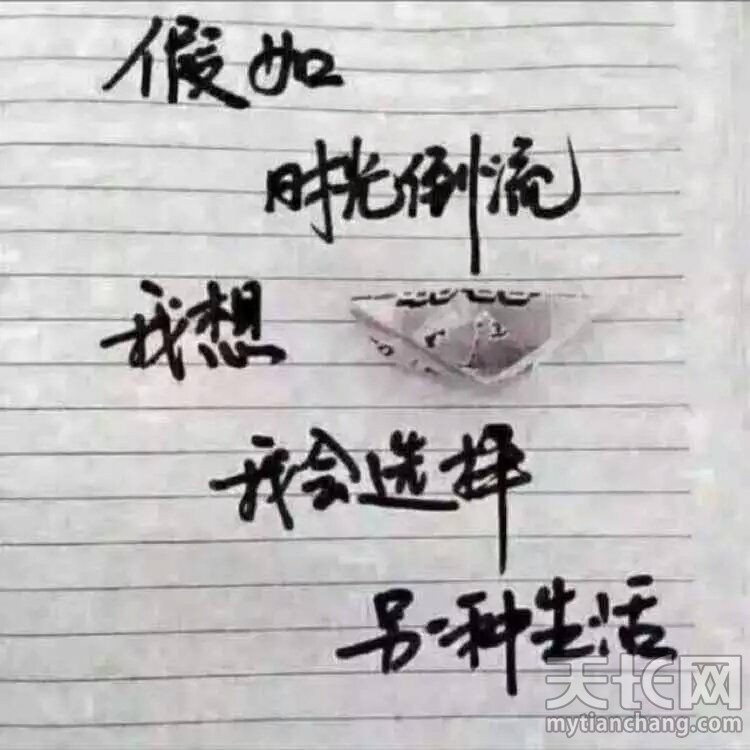 假如
时光倒流
我想
我会选择
另一种生活
天长网
mytianchang.com